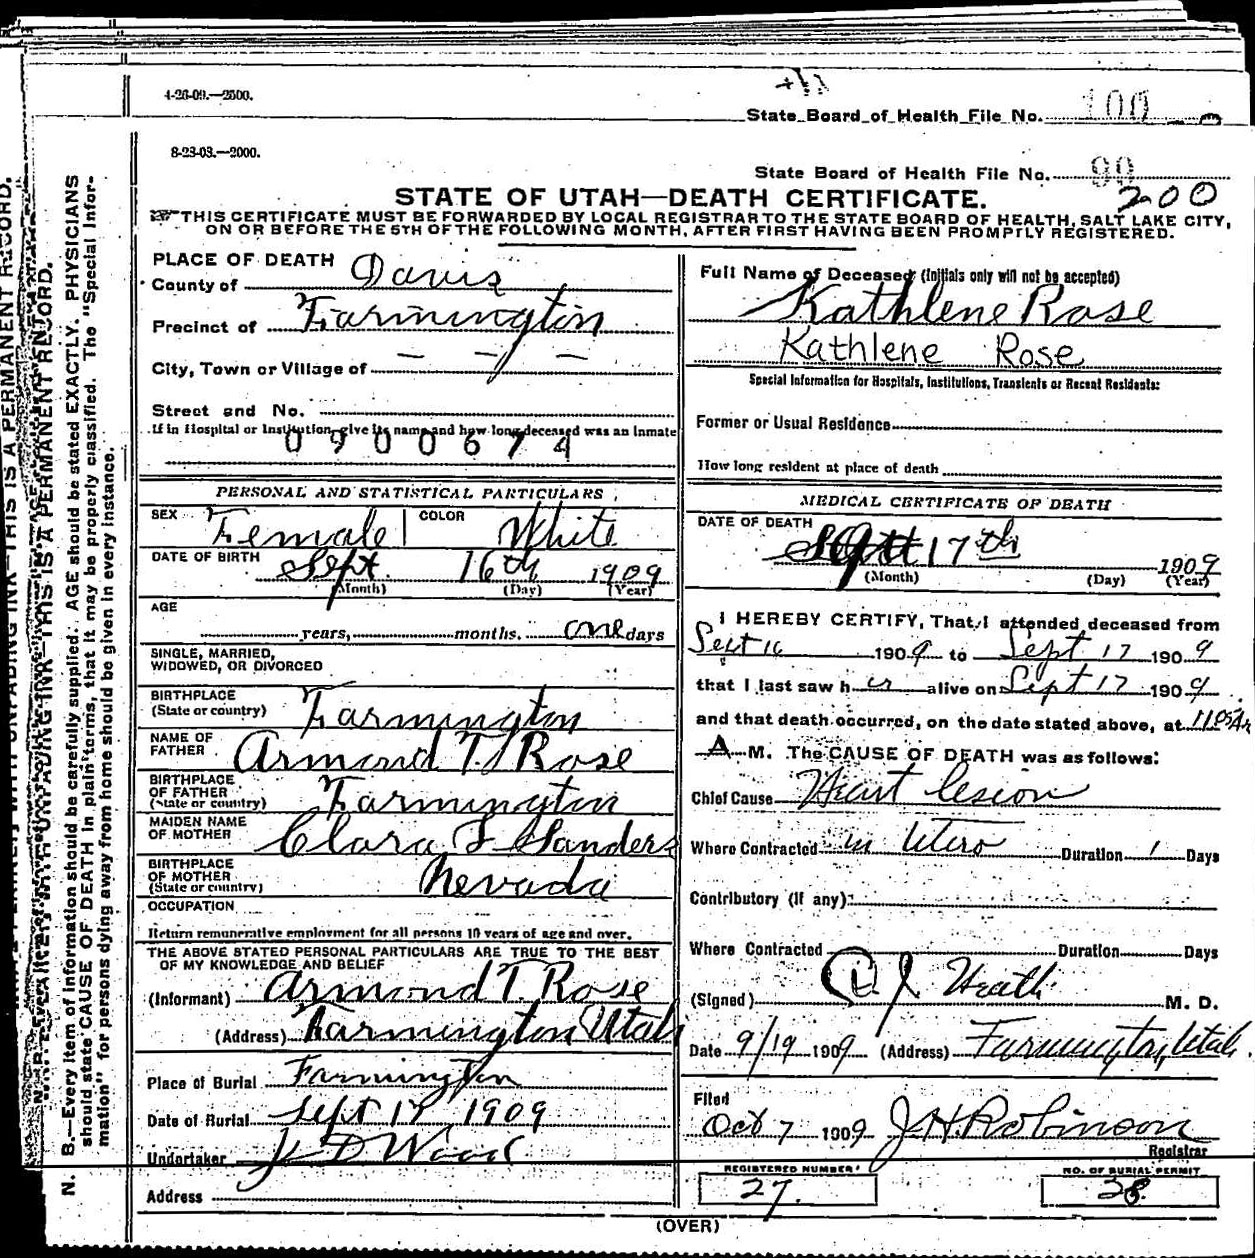 4-26-09.—2500.
State Board of Health File No. 100
8-23-03.—2000.
State Board of Health File No. 99
200
STATE OF UTAH—DEATH CERTIFICATE.
THIS CERTIFICATE MUST BE FORWARDED BY LOCAL REGISTRAR TO THE STATE BOARD OF HEALTH, SALT LAKE CITY,
ON OR BEFORE THE 5TH OF THE FOLLOWING MONTH, AFTER FIRST HAVING BEEN PROMPTLY REGISTERED.
PLACE OF DEATH
County of Davis
Precinct of Farmington
City, Town or Village of — — —
Street and No.
If in Hospital or Institution, give its name and how long deceased was an inmate
0900674
PERSONAL AND STATISTICAL PARTICULARS
SEX Female COLOR White
DATE OF BIRTH Sept. 16th 1909
(Month) (Day) (Year)
AGE
years, months. one days
SINGLE, MARRIED,
WIDOWED, OR DIVORCED
BIRTHPLACE
(State or country) Farmington
NAME OF
FATHER Armond T. Rose
BIRTHPLACE
OF FATHER
(State or country) Farmington
MAIDEN NAME
OF MOTHER Clara F Sanders
BIRTHPLACE
OF MOTHER
(State or country) Nevada
OCCUPATION
Return remunerative employment for all persons 10 years of age and over.
THE ABOVE STATED PERSONAL PARTICULARS ARE TRUE TO THE BEST
OF MY KNOWLEDGE AND BELIEF
(Informant) Armond T. Rose
(Address) Farmington Utah
Place of Burial Farmington
Date of Burial Sept 17, 1909
Undertaker J D Wood
Address
Full Name of Deceased (Initials only will not be accepted)
Kathlene Rose
Kathlene Rose
Special Information for Hospitals, Institutions, Transients or Recent Residents:
Former or Usual Residence
How long resident at place of death
MEDICAL CERTIFICATE OF DEATH
DATE OF DEATH
Sept 17th 1909
(Month) (Day) (Year)
I HEREBY CERTIFY, That I attended deceased from
Sept 16 1909 to Sept 17 1909
that I last saw her alive on Sept 17 1909
and that death occurred, on the date stated above, at
A M. The CAUSE OF DEATH was as follows:
Chief Cause Heart lesion
Where Contracted in Utero Duration 1 Days
Contributory (if any):
Where Contracted Duration Days
(Signed) J Heath M. D.
Date 9/19 1909 (Address) Farmington, Utah.
Filed
Oct 7 1909 J. H. Robinson
Registrar
REGISTERED NUMBER
27.
NO. OF BURIAL PERMIT
28.
(OVER)
N. B.—Every item of information should be carefully supplied. AGE should be stated EXACTLY. PHYSICIANS
should state CAUSE OF DEATH in plain terms, that it may be properly classified. The "Special Infor-
mation" for persons dying away from home should be given in every instance.
THIS IS A PERMANENT RECORD.
THIS IS A PERMANENT RECORD.